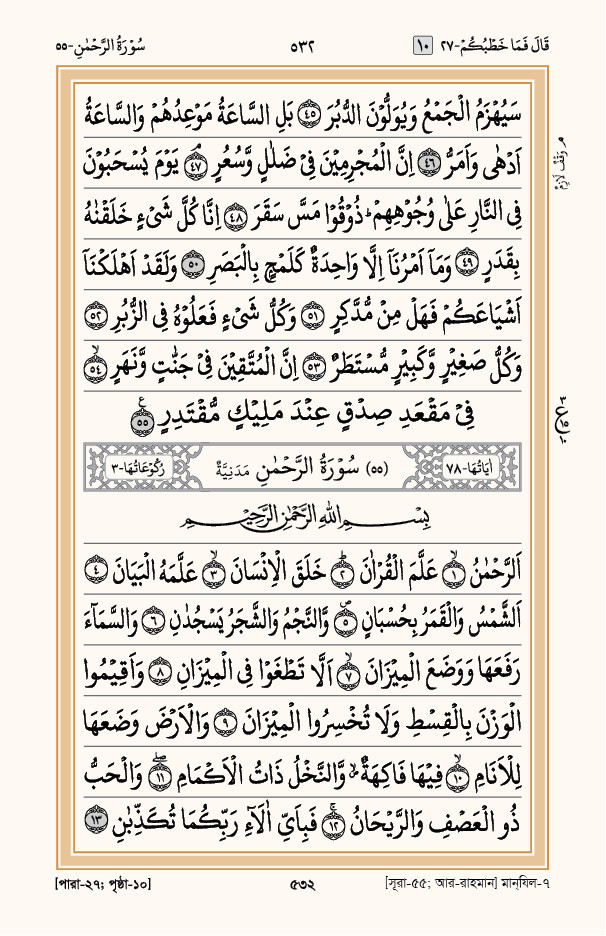 قَالَ فَمَا خَطْبُكُمْ-٢٧ ١٠ ٥٣٢ سُوْرَةُ الرَّحْمٰنِ-٥٥
سَيُهْزَمُ الْجَمْعُ وَيُوَلُّوْنَ الدُّبُرَ ﴿٤٥﴾ بَلِ السَّاعَةُ مَوْعِدُهُمْ وَالسَّاعَةُ
اَدْهٰى وَاَمَرُّ ﴿٤٦﴾ اِنَّ الْمُجْرِمِيْنَ فِيْ ضَلٰلٍ وَّسُعُرٍ ﴿٤٧﴾ۘ يَوْمَ يُسْحَبُوْنَ
م وَقْفُ لَازِمْ
فِى النَّارِ عَلٰى وُجُوْهِهِمْ ؕ ذُوْقُوْا مَسَّ سَقَرَ ﴿٤٨﴾ اِنَّا كُلَّ شَىْءٍ خَلَقْنٰهُ
بِقَدَرٍ ﴿٤٩﴾ وَمَاۤ اَمْرُنَاۤ اِلَّا وَاحِدَةٌ كَلَمْحٍۭ بِالْبَصَرِ ﴿٥٠﴾ وَلَقَدْ اَهْلَكْنَاۤ
اَشْيَاعَكُمْ فَهَلْ مِنْ مُّدَّكِرٍ ﴿٥١﴾ وَكُلُّ شَىْءٍ فَعَلُوْهُ فِى الزُّبُرِ ﴿٥٢﴾
وَكُلُّ صَغِيْرٍ وَّكَبِيْرٍ مُّسْتَطَرٌ ﴿٥٣﴾ اِنَّ الْمُتَّقِيْنَ فِيْ جَنّٰتٍ وَّنَهَرٍ ﴿٥٤﴾ۙ
فِيْ مَقْعَدِ صِدْقٍ عِنْدَ مَلِيْكٍ مُّقْتَدِرٍ ﴿٥٥﴾ ع
اٰيَاتُهَا-٧٨ (٥٥) سُوْرَةُ الرَّحْمٰنِ مَدَنِيَّةٌ رُكُوْعَاتُهَا-٣
بِسْمِ اللّٰهِ الرَّحْمٰنِ الرَّحِيْمِ
اَلرَّحْمٰنُ ﴿١﴾ۙ عَلَّمَ الْقُرْاٰنَ ﴿٢﴾ؕ خَلَقَ الْاِنْسَانَ ﴿٣﴾ۙ عَلَّمَهُ الْبَيَانَ ﴿٤﴾
اَلشَّمْسُ وَالْقَمَرُ بِحُسْبَانٍ ﴿٥﴾۪ وَّالنَّجْمُ وَالشَّجَرُ يَسْجُدٰنِ ﴿٦﴾ وَالسَّمَآءَ
رَفَعَهَا وَوَضَعَ الْمِيْزَانَ ﴿٧﴾ۙ اَلَّا تَطْغَوْا فِى الْمِيْزَانِ ﴿٨﴾ وَاَقِيْمُوا
الْوَزْنَ بِالْقِسْطِ وَلَا تُخْسِرُوا الْمِيْزَانَ ﴿٩﴾ وَالْاَرْضَ وَضَعَهَا
لِلْاَنَامِ ﴿١٠﴾ۙ فِيْهَا فَاكِهَةٌ ۪ۙ وَّالنَّخْلُ ذَاتُ الْاَكْمَامِ ﴿١١﴾ۖ وَالْحَبُّ
ذُو الْعَصْفِ وَالرَّيْحَانُ ﴿١٢﴾ۚ فَبِاَيِّ اٰلَآءِ رَبِّكُمَا تُكَذِّبٰنِ ﴿١٣﴾
[পারা-২৭; পৃষ্ঠা-১০] ৫৩২ [সূরা-৫৫; আর-রাহমান] মান্‌যিল-৭